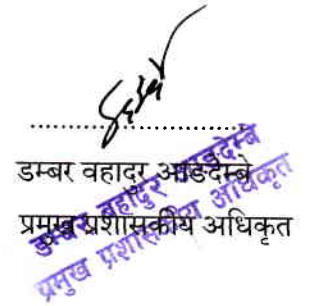 डम्बर वहादुर आङदेम्बे
प्रमुख प्रशासकीय अधिकृत
डम्बर बहादुर आङदेम्बे
प्रमुख प्रशासकीय अधिकृत